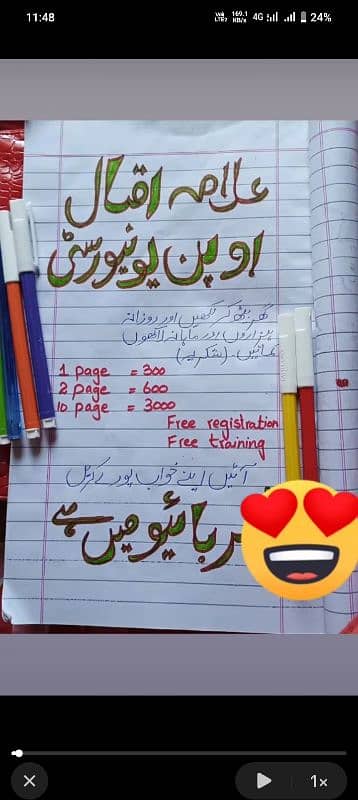 11:48 VoLTE2 169.1 KB/s 4G 24%
علامہ اقبال
اوپن یونیورسٹی
گھر بیٹھ کر لکھیں اور روزانہ
ہزاروں اور ماہانہ لاکھوں
کمائیں۔ (شکریہ)
1 page = 300
2 page = 600
10 page = 3000
Free registration
Free training
آئیں اپنے خواب پورے کریں
بائیو میں ہے
1×